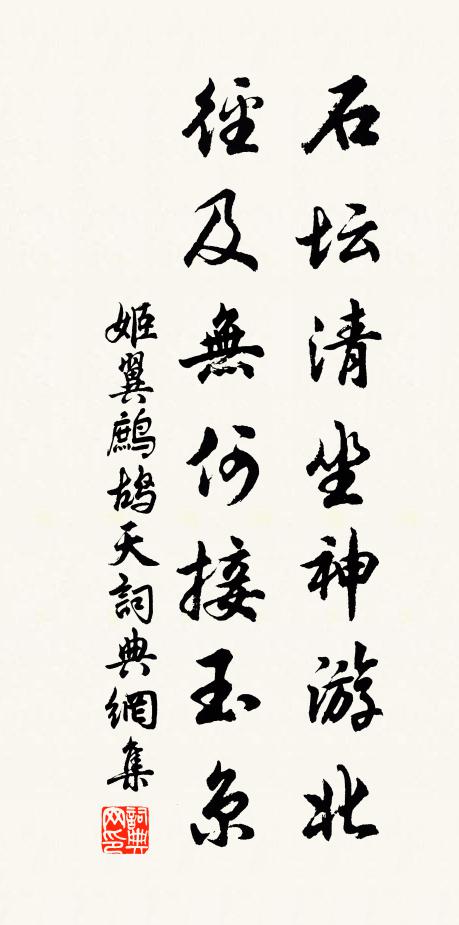 石坛清坐神游北
徑及無何接玉京
姬翼鷓鴣天詞典網集
詞典网印